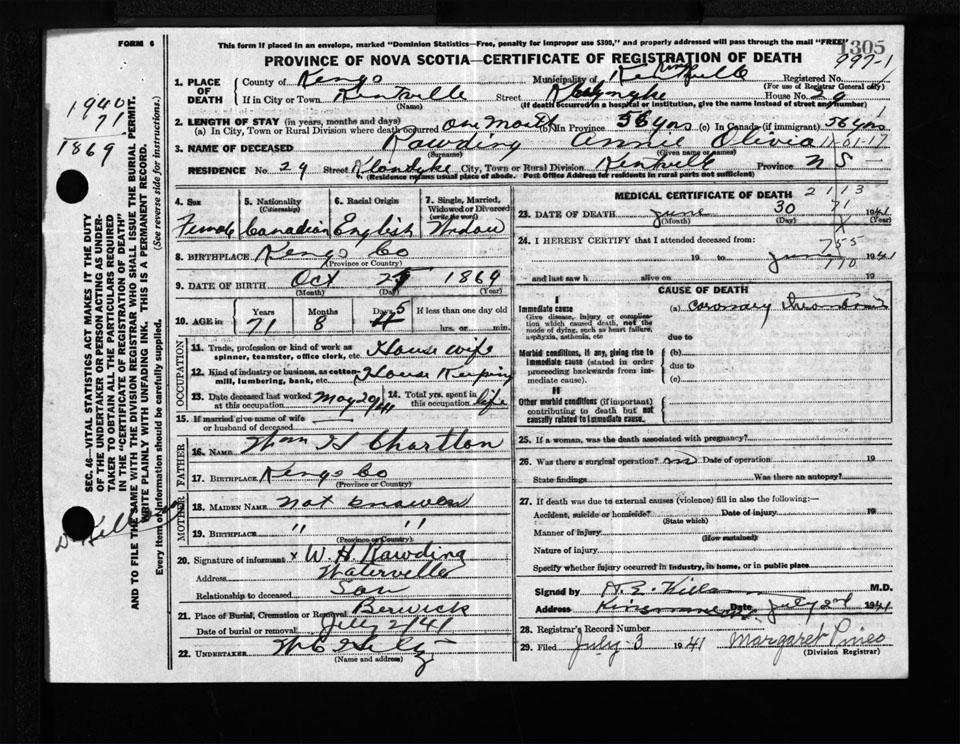 FORM 6
This form if placed in an envelope, marked "Dominion Statistics—Free, penalty for improper use $300," and properly addressed will pass through the mail "FREE"
1305
PROVINCE OF NOVA SCOTIA—CERTIFICATE OF REGISTRATION OF DEATH
997-1
1. PLACE OF DEATH
County of Kings Municipality of Kings Registered No.
(For use of Registrar General only)
If in City or Town Kentville Street Klondyke House No. 29
(Name) (If death occurred in a hospital or institution, give the name instead of street and number)
2. LENGTH OF STAY (in years, months and days)
(a) In City, Town or Rural Division where death occurred one month (b) In Province 56 yrs (c) In Canada (if immigrant) 56 yrs
3. NAME OF DECEASED Rawding Annie Olivia
(Surname) (Given name or names)
RESIDENCE No. 29 Street Klondyke City, Town or Rural Division Kentville Province N S
(Residence means usual place of abode. Post Office Address for residents in rural parts not sufficient)
4. Sex
Female
5. Nationality
(Citizenship)
Canadian
6. Racial Origin
English
7. Single, Married, Widowed or Divorced
(write the word)
Widow
8. BIRTHPLACE Kings Co
(Province or Country)
9. DATE OF BIRTH Oct 1869
(Month) (Day) (Year)
10. AGE in Years Months Days If less than one day old
71 8 5 hrs. or min.
OCCUPATION
11. Trade, profession or kind of work as spinner, teamster, office clerk, etc. House wife
12. Kind of industry or business, as cotton-mill, lumbering, bank, etc. House Keeping
13. Date deceased last worked at this occupation May 29/41
14. Total yrs. spent in this occupation life
15. If married give name of wife or husband of deceased
FATHER
16. NAME Chartlon
17. BIRTHPLACE Kings Co
(Province or Country)
MOTHER
18. MAIDEN NAME not known
19. BIRTHPLACE " "
(Province or Country)
20. Signature of informant x W. H. Rawding
Address Waterville
Relationship to deceased Son
21. Place of Burial, Cremation or Removal Berwick
Date of burial or removal July 2/41
22. UNDERTAKER
(Name and address)
MEDICAL CERTIFICATE OF DEATH
2113
23. DATE OF DEATH June 30 1941
(Month) (Day) (Year)
71
X
24. I HEREBY CERTIFY that I attended deceased from:
755
19 to June 1941
770
and last saw h alive on 19
CAUSE OF DEATH
I
Immediate cause
Give disease, injury or complication which caused death, not the mode of dying, such as heart failure, asphyxia, asthenia, etc
(a) coronary thrombosis
due to
Morbid conditions, if any, giving rise to immediate cause (stated in order proceeding backwards from immediate cause).
(b)
due to
(c)
II
Other morbid conditions (if important) contributing to death but not causally related to immediate cause.
25. If a woman, was the death associated with pregnancy?
26. Was there a surgical operation? no Date of operation 19
State findings Was there an autopsy?
27. If death was due to external causes (violence) fill in also the following:—
Accident, suicide or homicide? Date of injury 19
(State which)
Manner of injury
(How sustained)
Nature of injury
Specify whether injury occurred in industry, in home, or in public place
Signed by M.D.
Address Date July 2nd 1941
28. Registrar's Record Number
29. Filed July 3 1941 Margaret Pineo
(Division Registrar)
1940
71
1869
SEC. 46—VITAL STATISTICS ACT MAKES IT THE DUTY
OF THE UNDERTAKER OR PERSON ACTING AS UNDER-
TAKER TO OBTAIN ALL THE PARTICULARS REQUIRED
IN THE "CERTIFICATE OF REGISTRATION OF DEATH"
AND TO FILE THE SAME WITH THE DIVISION REGISTRAR WHO SHALL ISSUE THE BURIAL PERMIT.
WRITE PLAINLY WITH UNFADING INK. THIS IS A PERMANENT RECORD.
Every item of information should be carefully supplied. (See reverse side for instructions.)